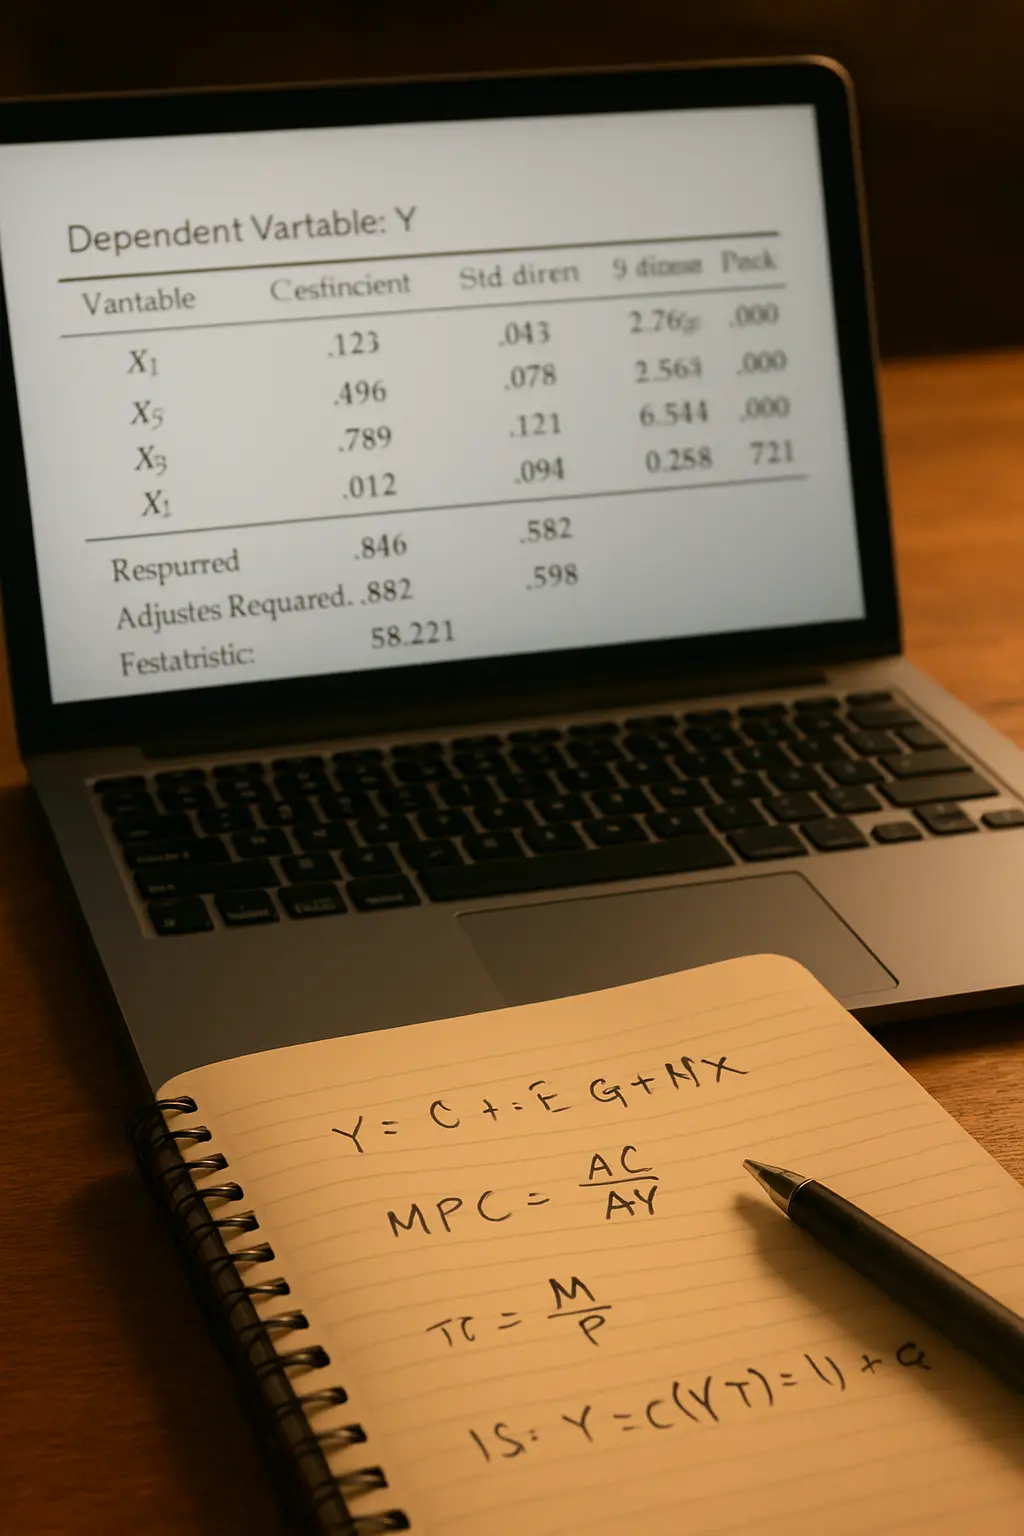 Dependent Vartable: Y
Vantable Cesfincient Std diren 9 Peck
X1 .123 .043 .000
X5 .496 .078 2.563 .000
X3 .789 .121 6.544 .000
X1 .012 .094 0.258 721
Respurred .846 .582
Adjustes Requared. .882 .598
Festatristic: 58.221
Y = C +=E G+NX
MPC = AC/AY
π = M/P
IS: Y = C(YT)= 1) + G